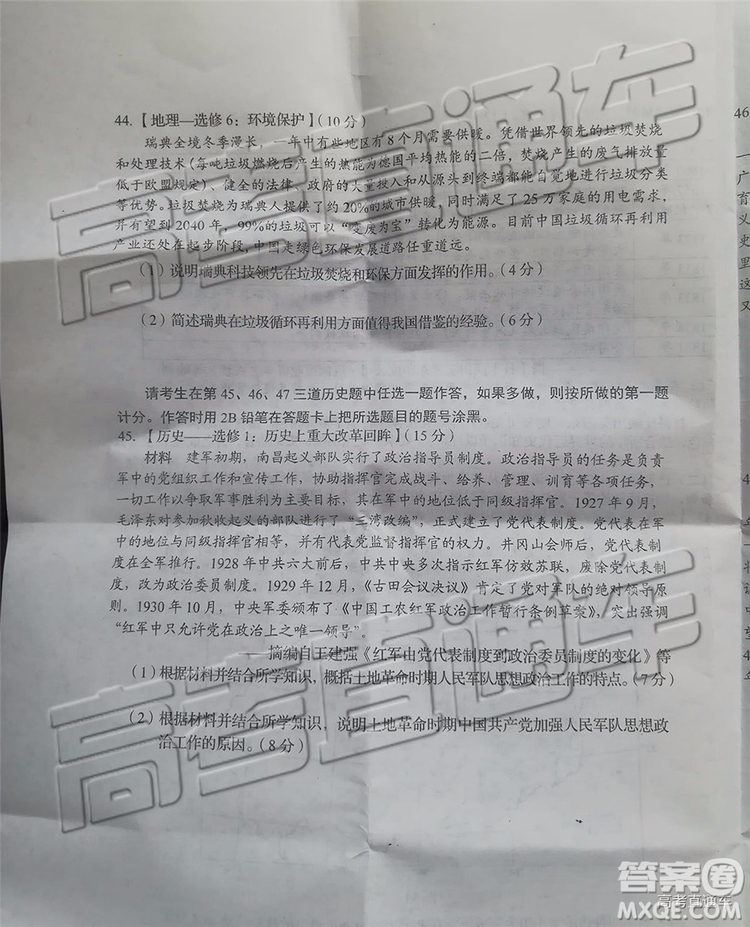 44. 【地理—选修 6：环境保护】(10 分)
瑞典全境冬季漫长，一年中有些地区有 8 个月需要供暖。凭借世界领先的垃圾焚烧
和处理技术(每吨垃圾燃烧后产生的热能为德国平均热能的二倍，焚烧产生的废气排放量
低于欧盟规定)、健全的法律、政府的大量投入和从源头到终端都能自觉地进行垃圾分类
等优势。垃圾焚烧为瑞典人提供了约 20%的城市供暖，同时满足了 25 万家庭的用电需求，
并有望到 2040 年，99%的垃圾可以“变废为宝”转化为能源。目前中国垃圾循环再利用
产业还处在起步阶段，中国走绿色环保发展道路任重道远。
(1) 说明瑞典科技领先在垃圾焚烧和环保方面发挥的作用。(4 分)
(2) 简述瑞典在垃圾循环再利用方面值得我国借鉴的经验。(6 分)
请考生在第 45、46、47 三道历史题中任选一题作答，如果多做，则按所做的第一题
计分。作答时用 2B 铅笔在答题卡上把所选题目的题号涂黑。
45. 【历史——选修 1：历史上重大改革回眸】(15 分)
材料 建军初期，南昌起义部队实行了政治指导员制度。政治指导员的任务是负责
军中的党组织工作和宣传工作，协助指挥官完成战斗、给养、管理、训育等各项任务，
一切工作以争取军事胜利为主要目标，其在军中的地位低于同级指挥官。1927 年 9 月，
毛泽东对参加秋收起义的部队进行了“三湾改编”，正式建立了党代表制度。党代表在军
中的地位与同级指挥官相等，并有代表党监督指挥官的权力。井冈山会师后，党代表制
度在全军推行。1928 年中共六大前后，中共中央多次指示红军仿效苏联，废除党代表
制度，改为政治委员制度。1929 年 12 月，《古田会议决议》肯定了党对军队的绝对领导原
则。1930 年 10 月，中央军委颁布了《中国工农红军政治工作暂行条例草案》，突出强调
“红军中只允许党在政治上之唯一领导”。
——摘编自王建强《红军由党代表制度到政治委员制度的变化》等
(1) 根据材料并结合所学知识，概括土地革命时期人民军队思想政治工作的特点。(7 分)
(2) 根据材料并结合所学知识，说明土地革命时期中国共产党加强人民军队思想政
治工作的原因。(8 分)
高考直通车
高考直通车
高考直通车
答案圈
高考直通车
MXQE.COM
46